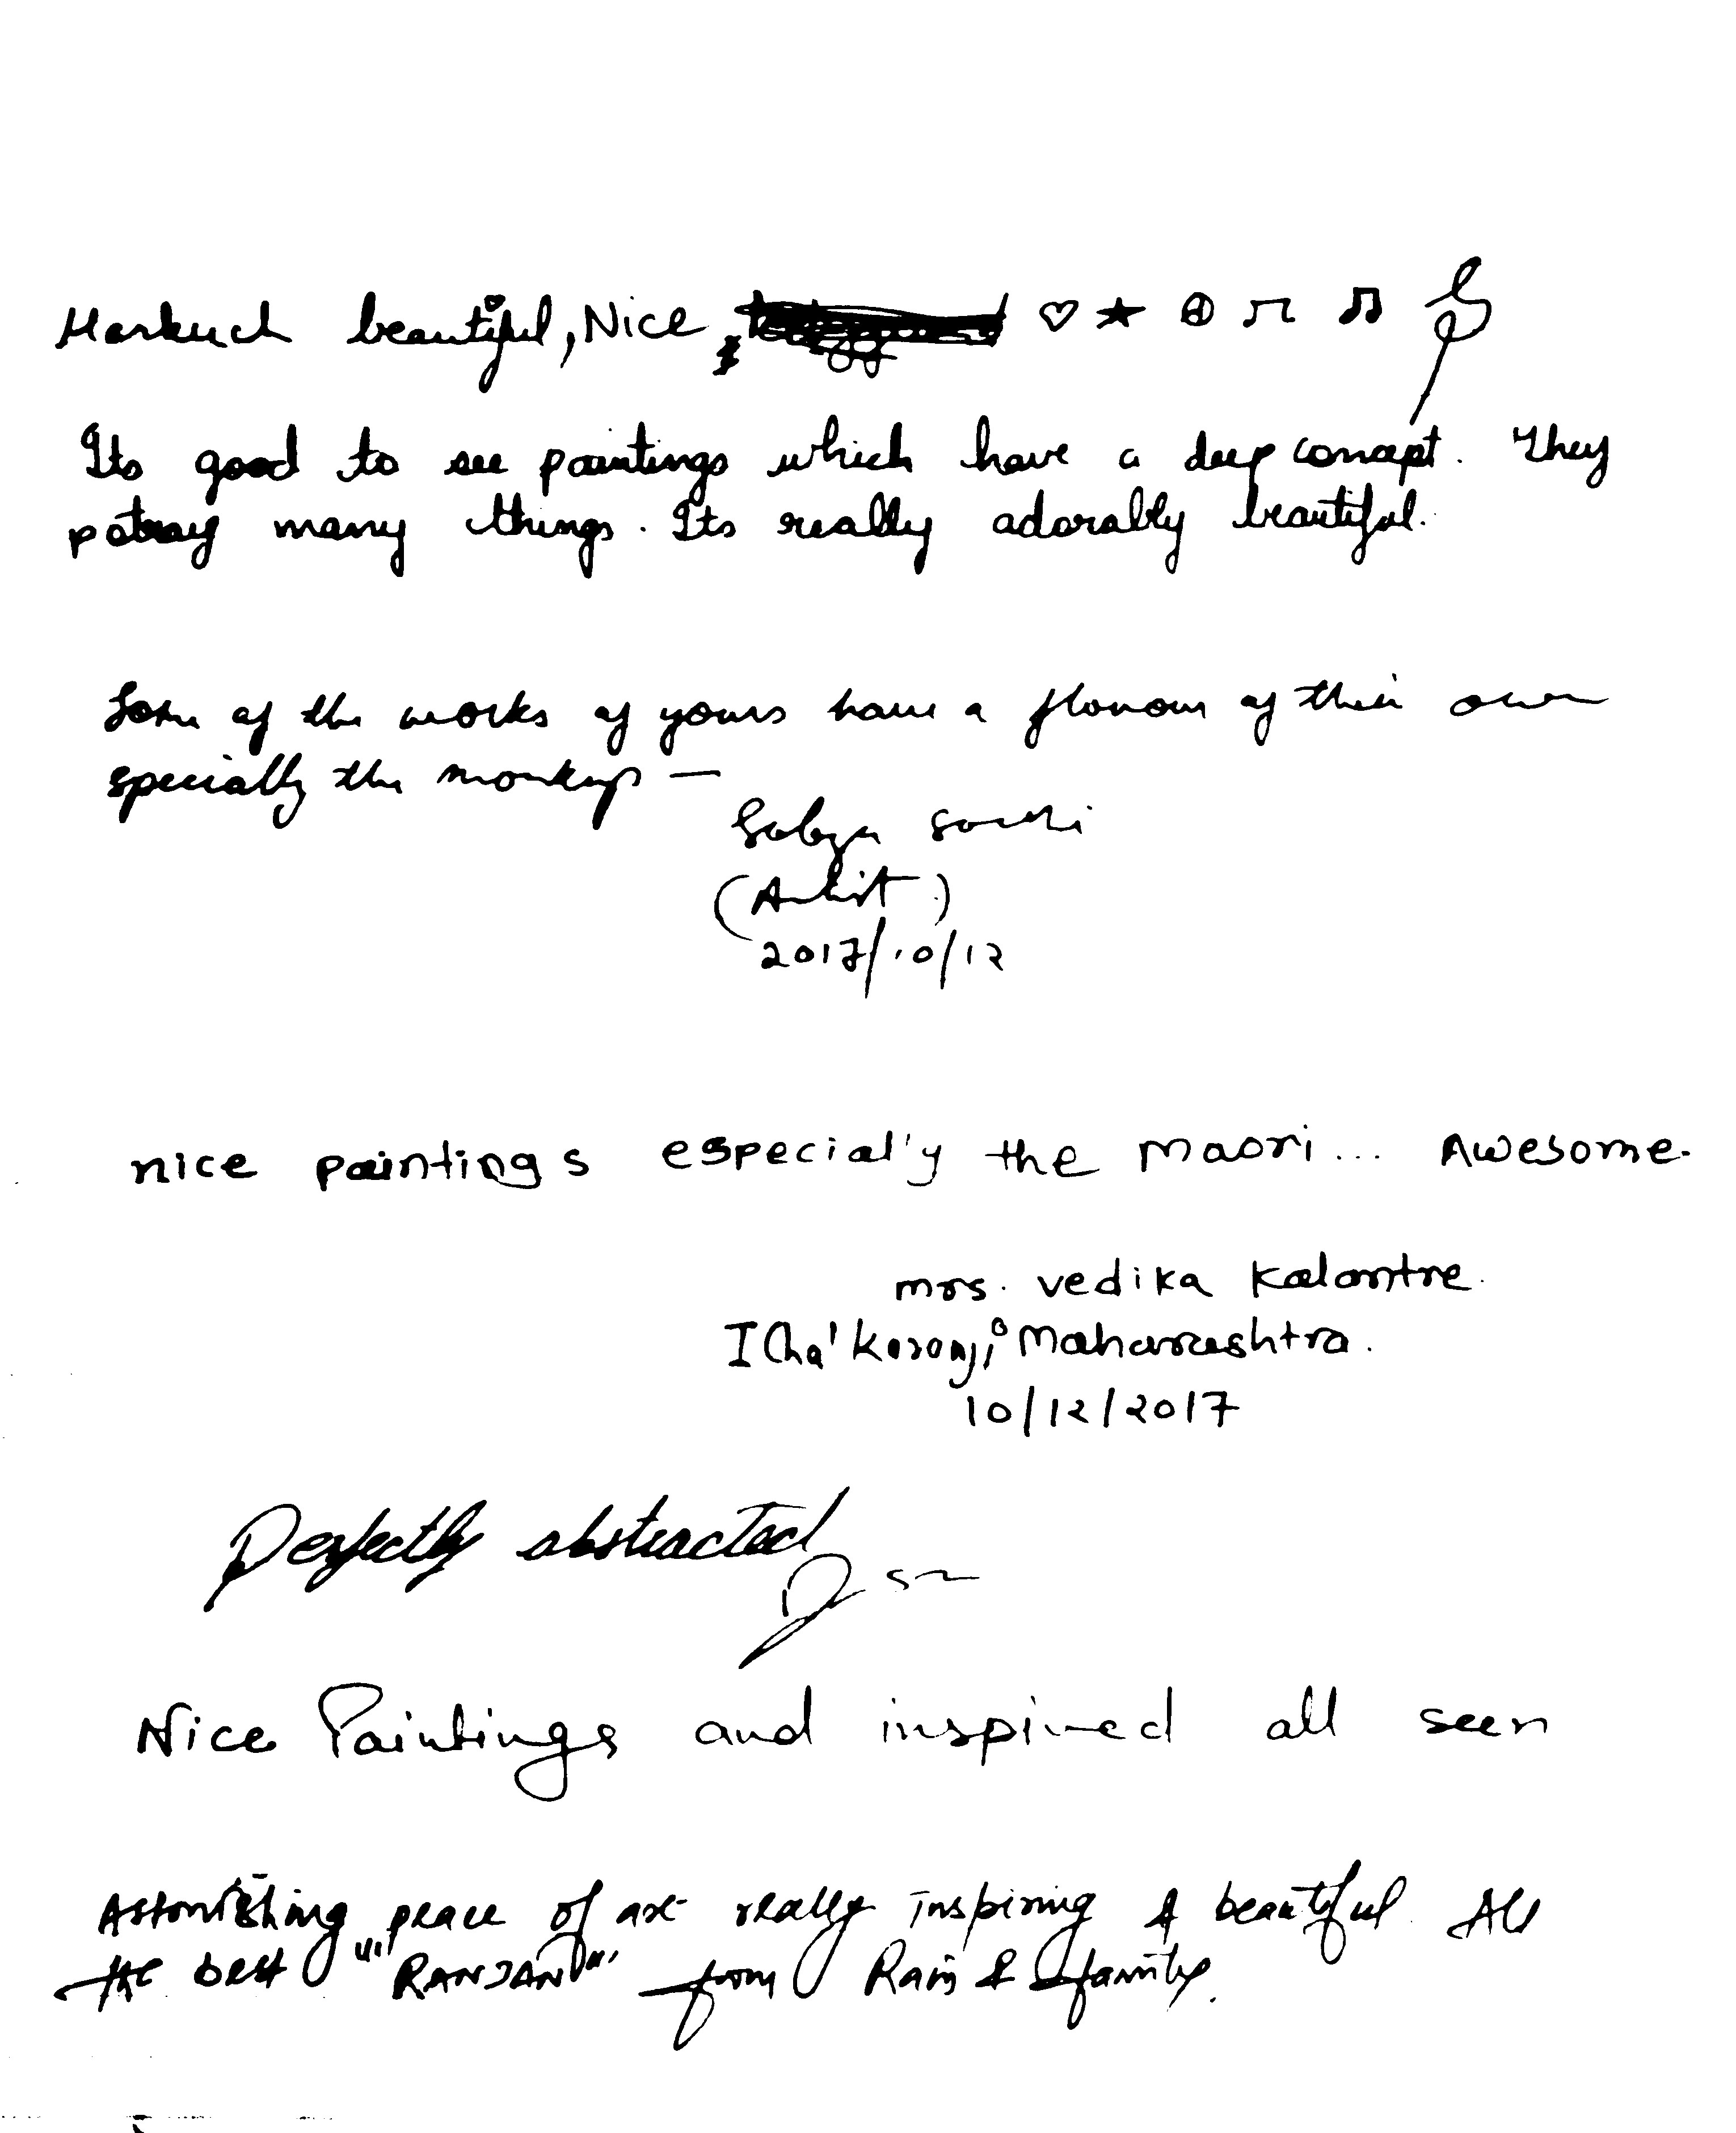 beautiful, Nice ♡ ★ ♫
Its good to see paintings which have a deep concept. They
potray many things. Its really adorably beautiful.
Some of the works of yours have a flavour of their own
specially the
(Ankit)
2017/10/12
nice paintings especially the maori... Awesome.
mrs. vedika Kalantre.
Maharashtra.
10/12/2017
Perfectly abstracted
Nice Paintings and inspired all seen
Astonishing peace of art really inspiring & beautiful All
the best "RANJAN" from & family.